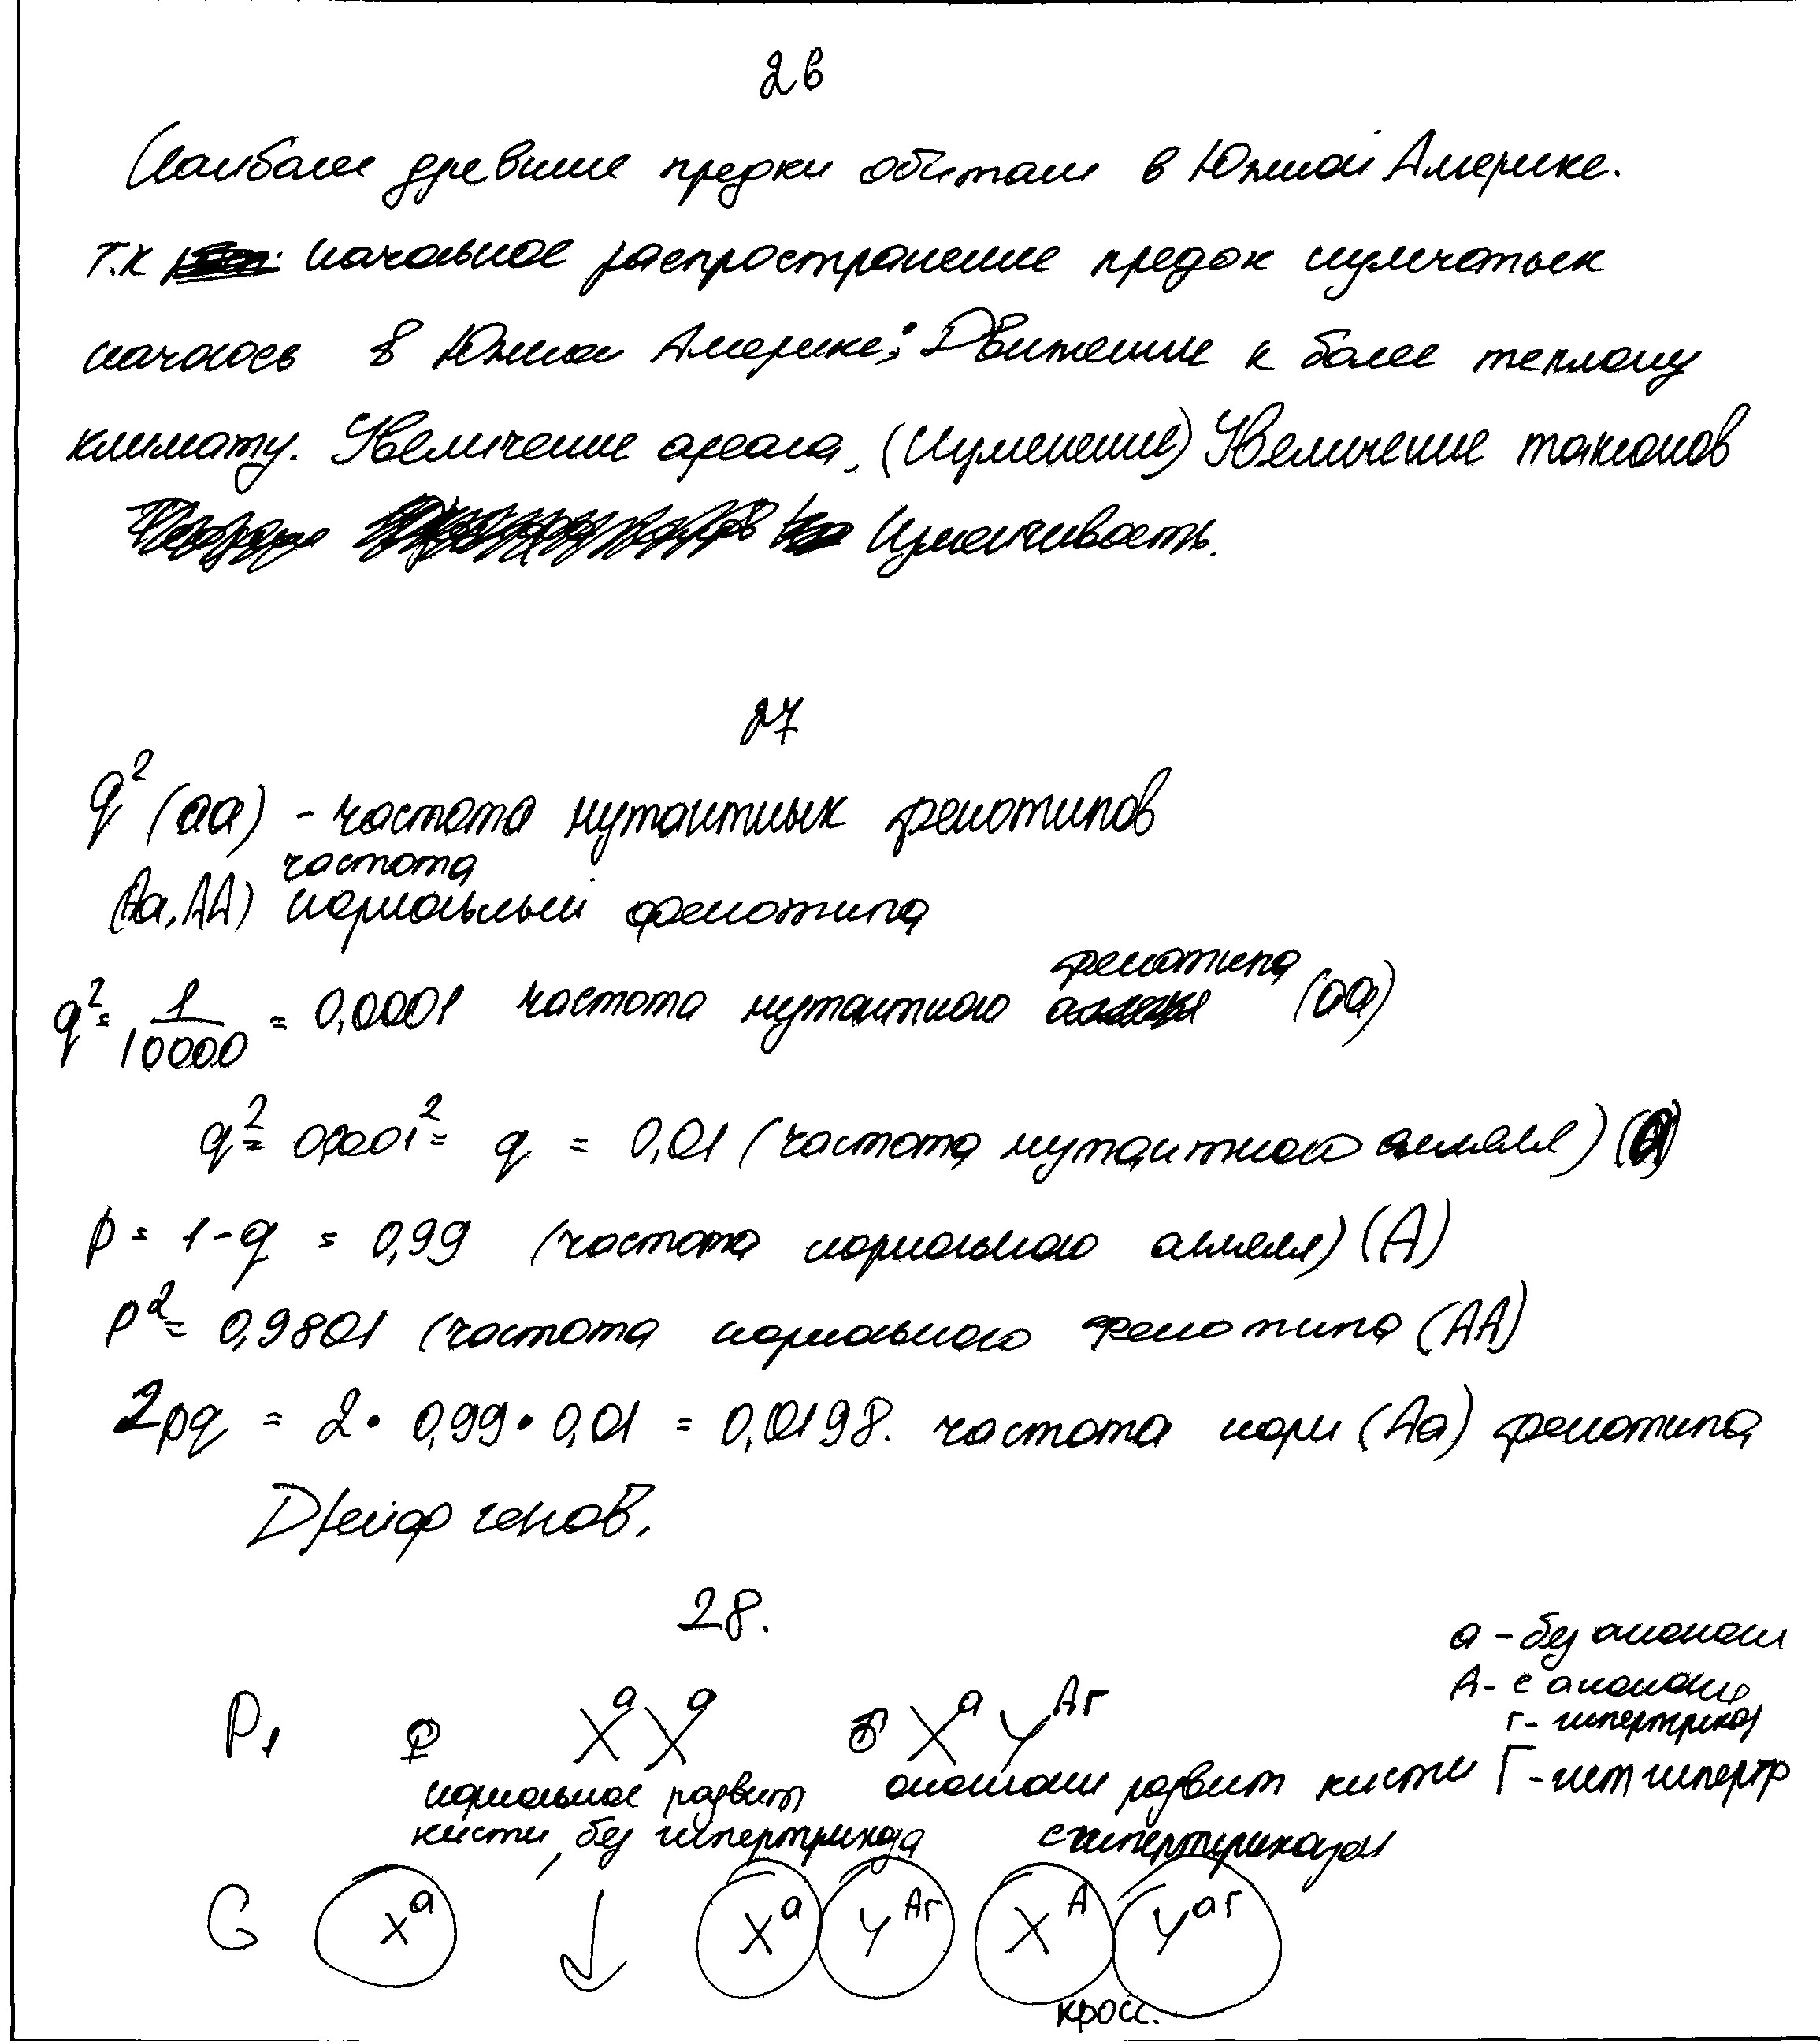 26
Наиболее древние предки обитали в Южной Америке.
т.к начальное распространение предок сумчатых
началось в Южной Америке; Движение к более теплому
климату. Увеличение ареала, (Изменение) Увеличение таксонов
Изменчивость.
27
q² (aa) - частота мутантных фенотипов
частота
(Aa, AA) нормальный фенотипа
фенотипа
q² = 1/10000 = 0,0001 частота мутантного (aa)
q² = 0,0001² = q = 0,01 (частота мутантного аллеля) (a)
p = 1-q = 0,99 (частота нормального аллеля) (A)
p² = 0,9801 (частота нормального фенотипа (AA)
2pq = 2 • 0,99 • 0,01 = 0,0198. частота норм (Aa) фенотипа
Дрейф генов.
28.
a - без аномали
A - с аномали
г - гипертрихоз
Г - нет гипертр
P₁ ♀ XᵃXᵃ ♂ XᵃYᴬг
нормальное развит аномали развит кисти
кисти, без гипертрихоза с гипертрихозом
G Xᵃ ↓ Xᵃ Yᴬг Xᴬ Yᵃг
кросс.